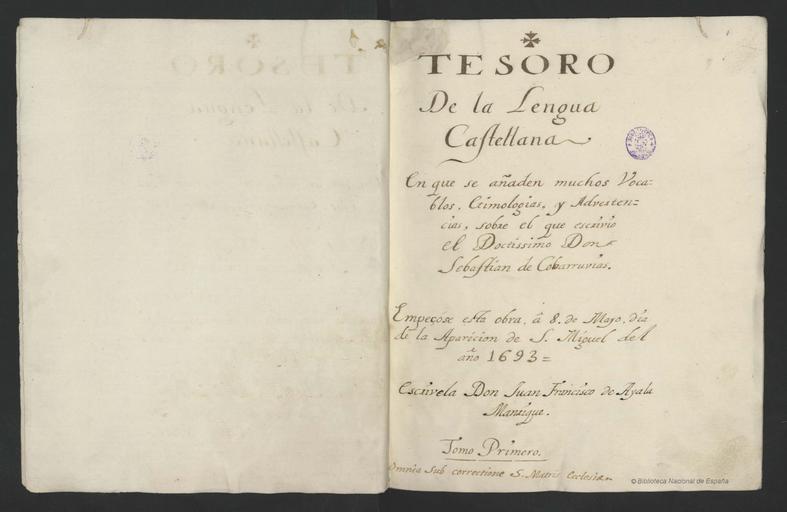 TESORO
De la Lengua
Castellana
En que se añaden muchos Voca=
blos, Etimologias, y Adverten=
cias, sobre el que escrivio
el Doctissimo Don
Sebastian de Cobarruvias.
Empeçóse esta obra, â 8. de Mayo, dia
de la Aparicion de S. Miguel del
año 1693=
Escrivela Don Juan Francisco de Ayala
Manrique.
Tomo Primero.
Omnia Sub correctione S. Matris Ecclesiæ
© Biblioteca Nacional de España